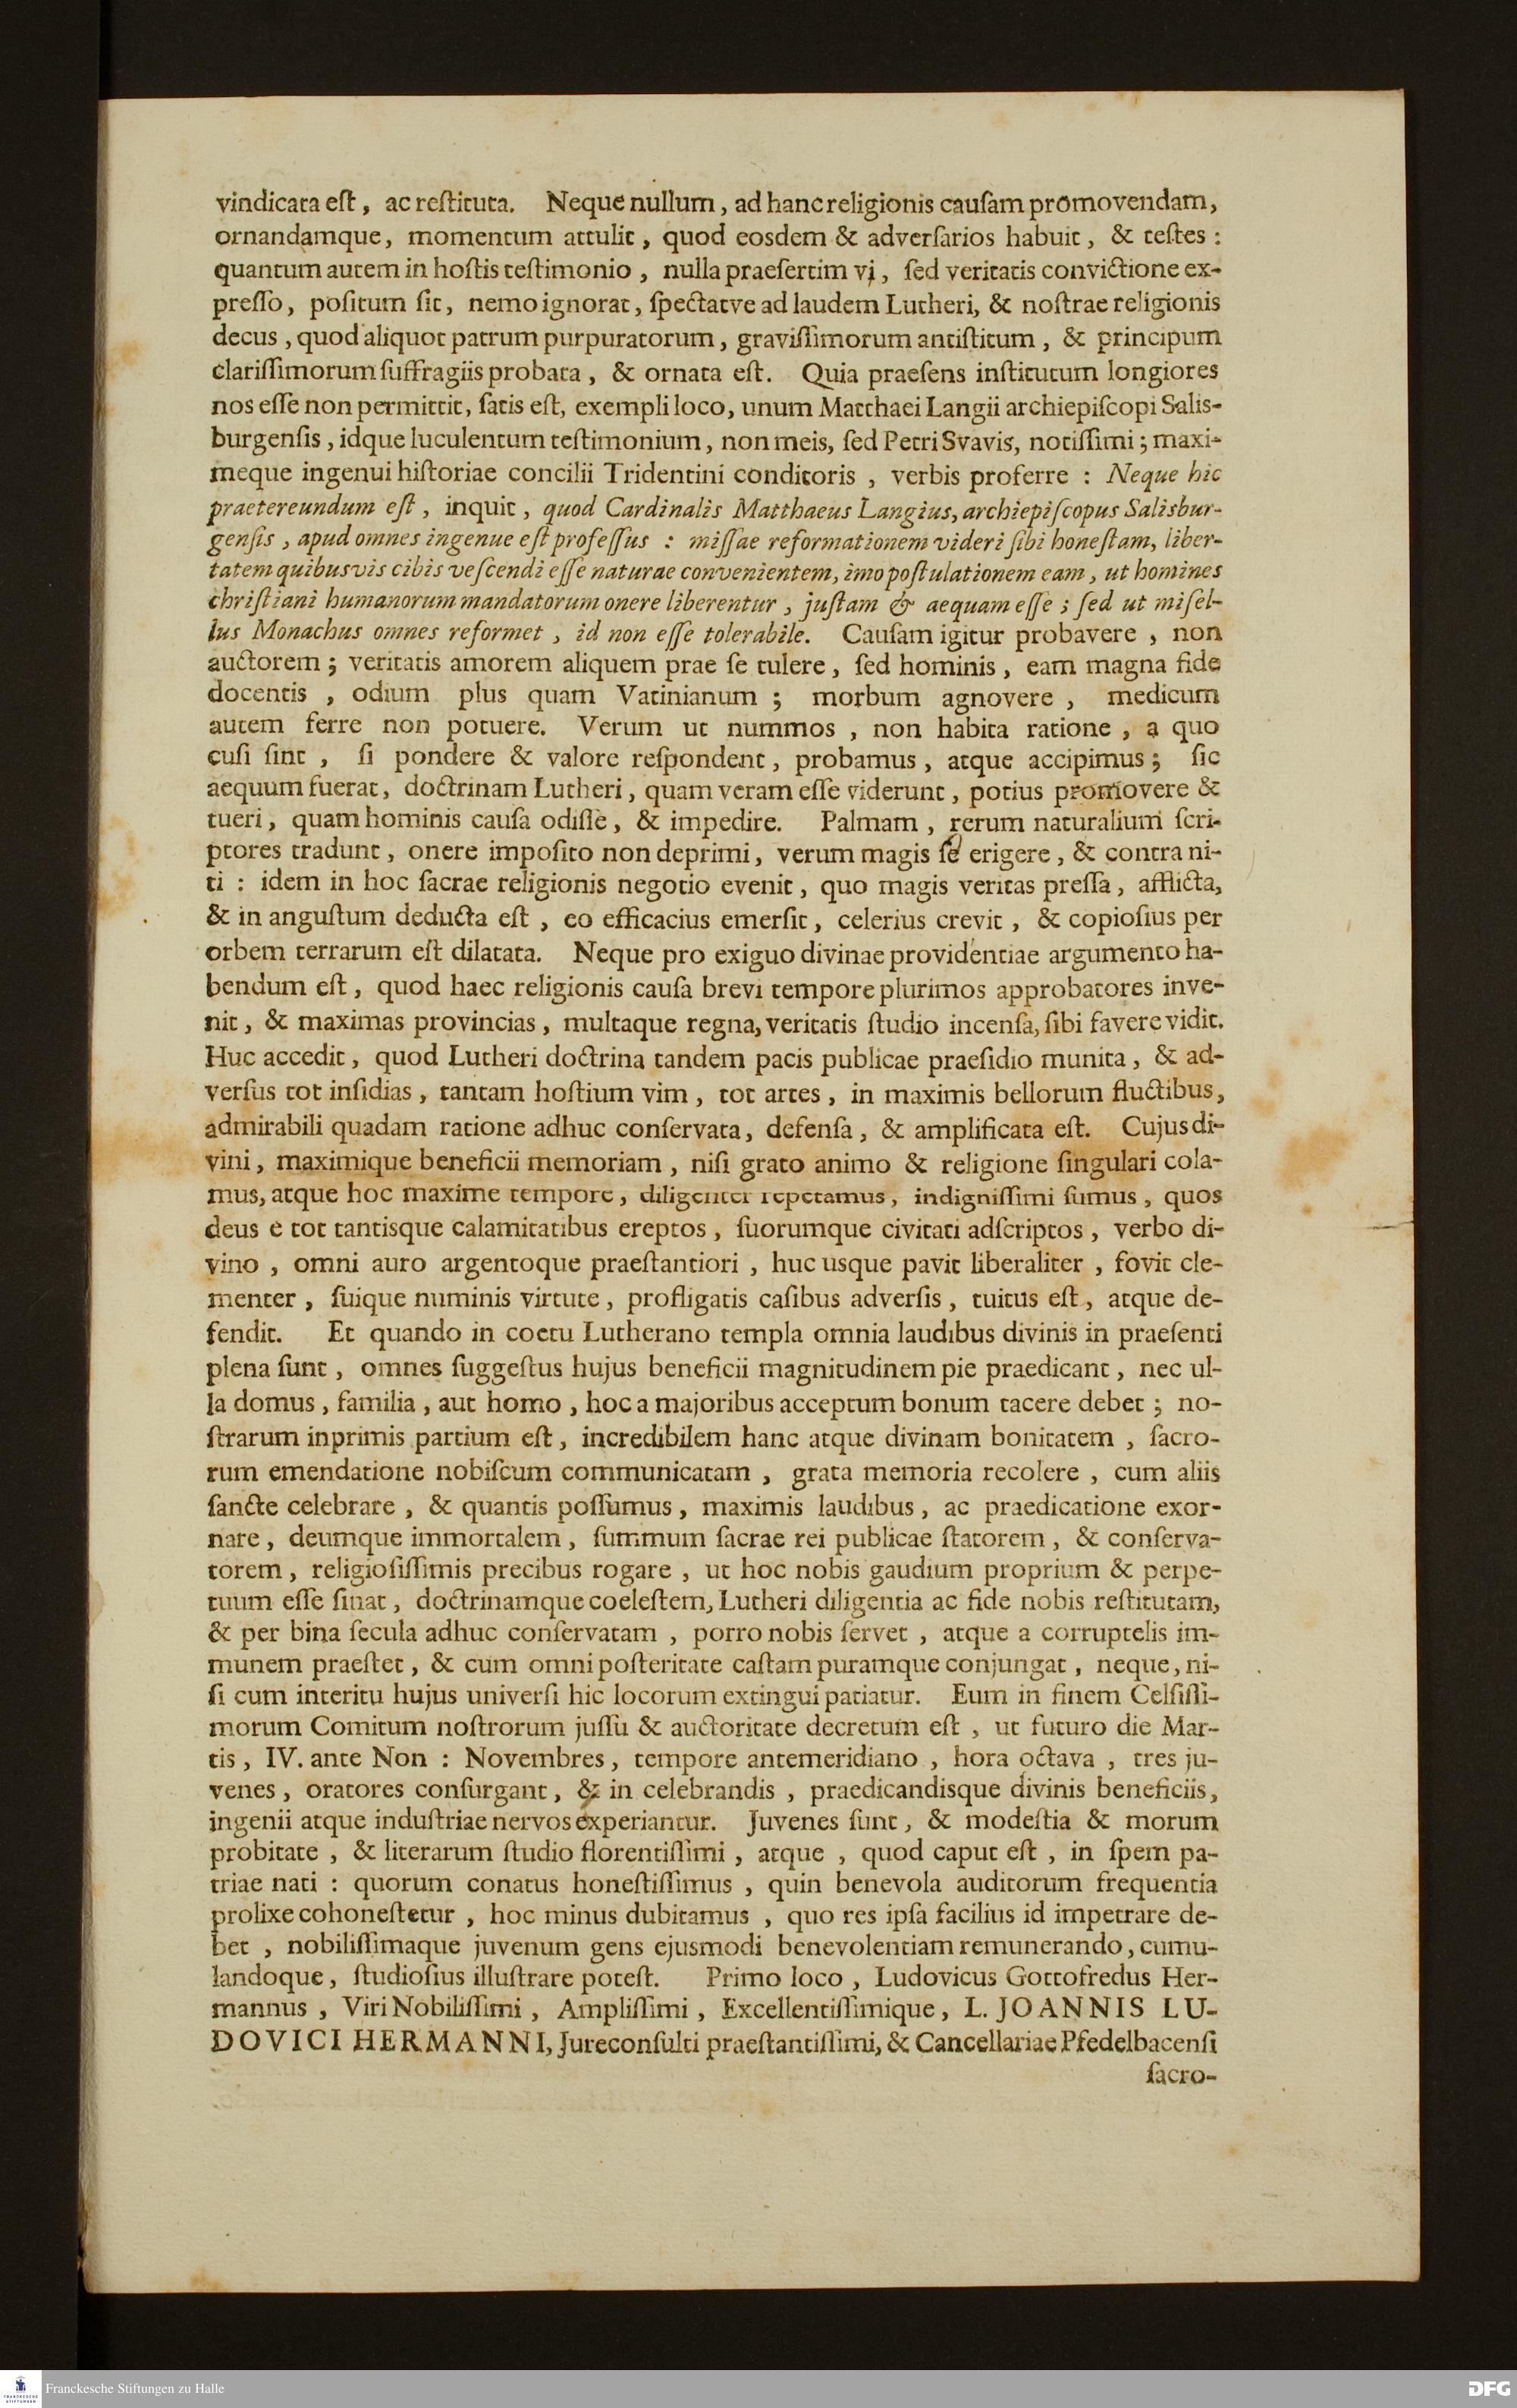 vindicata eſt, ac reſtituta. Neque nullum, ad hanc religionis cauſam promovendam,
ornandamque, momentum attulit, quod eosdem & adverſarios habuit, & teſtes:
quantum autem in hoſtis teſtimonio, nulla praeſertim vi, ſed veritatis convictione ex-
preſſo, poſitum ſit, nemo ignorat, ſpectatve ad laudem Lutheri, & noſtrae religionis
decus, quod aliquot patrum purpuratorum, graviſſimorum antiſtitum, & principum
clariſſimorum ſuffragiis probata, & ornata eſt. Quia praeſens inſtitutum longiores
nos eſſe non permittit, ſatis eſt, exempli loco, unum Matthaei Langii archiepiſcopi Salis-
burgenſis, idque luculentum teſtimonium, non meis, ſed Petri Svavis, notiſſimi; maxi-
meque ingenui hiſtoriae concilii Tridentini conditoris, verbis proferre: Neque hic
praetereundum eſt, inquit, quod Cardinalis Matthaeus Langius, archiepiſcopus Salisbur-
genſis, apud omnes ingenue eſt profeſſus: miſſae reformationem videri ſibi honeſtam, liber-
tatem quibusvis cibis veſcendi eſſe naturae convenientem, imo poſtulationem eam, ut homines
chriſtiani humanorum mandatorum onere liberentur, juſtam & aequam eſſe; ſed ut miſel-
lus Monachus omnes reformet, id non eſſe tolerabile. Cauſam igitur probavere, non
auctorem; veritatis amorem aliquem prae ſe tulere, ſed hominis, eam magna fide
docentis, odium plus quam Vatinianum; morbum agnovere, medicum
autem ferre non potuere. Verum ut nummos, non habita ratione, a quo
cuſi ſint, ſi pondere & valore reſpondent, probamus, atque accipimus; ſic
aequum fuerat, doctrinam Lutheri, quam veram eſſe viderunt, potius promovere &
tueri, quam hominis cauſa odiſſe, & impedire. Palmam, rerum naturalium ſcri-
ptores tradunt, onere impoſito non deprimi, verum magis ſe erigere, & contra ni-
ti: idem in hoc ſacrae religionis negotio evenit, quo magis veritas preſſa, afflicta,
& in anguſtum deducta eſt, eo efficacius emerſit, celerius crevit, & copioſius per
orbem terrarum eſt dilatata. Neque pro exiguo divinae providentiae argumento ha-
bendum eſt, quod haec religionis cauſa brevi tempore plurimos approbatores inve-
nit, & maximas provincias, multaque regna, veritatis ſtudio incenſa, ſibi favere vidit.
Huc accedit, quod Lutheri doctrina tandem pacis publicae praeſidio munita, & ad-
verſus tot inſidias, tantam hoſtium vim, tot artes, in maximis bellorum fluctibus,
admirabili quadam ratione adhuc conſervata, defenſa, & amplificata eſt. Cujus di-
vini, maximique beneficii memoriam, niſi grato animo & religione ſingulari cola-
mus, atque hoc maxime tempore, diligenter repetamus, indigniſſimi ſumus, quos
deus e tot tantisque calamitatibus ereptos, ſuorumque civitati adſcriptos, verbo di-
vino, omni auro argentoque praeſtantiori, huc usque pavit liberaliter, fovit cle-
menter, ſuique numinis virtute, profligatis caſibus adverſis, tuitus eſt, atque de-
fendit. Et quando in coetu Lutherano templa omnia laudibus divinis in praeſenti
plena ſunt, omnes ſuggeſtus hujus beneficii magnitudinem pie praedicant, nec ul-
la domus, familia, aut homo, hoc a majoribus acceptum bonum tacere debet; no-
ſtrarum inprimis partium eſt, incredibilem hanc atque divinam bonitatem, ſacro-
rum emendatione nobiſcum communicatam, grata memoria recolere, cum aliis
ſancte celebrare, & quantis poſſumus, maximis laudibus, ac praedicatione exor-
nare, deumque immortalem, ſummum ſacrae rei publicae ſtatorem, & conſerva-
torem, religioſiſſimis precibus rogare, ut hoc nobis gaudium proprium & perpe-
tuum eſſe ſinat, doctrinamque coeleſtem, Lutheri diligentia ac fide nobis reſtitutam,
& per bina ſecula adhuc conſervatam, porro nobis ſervet, atque a corruptelis im-
munem praeſtet, & cum omni poſteritate caſtam puramque conjungat, neque, ni-
ſi cum interitu hujus univerſi hic locorum extingui patiatur. Eum in finem Celſiſſi-
morum Comitum noſtrorum juſſu & auctoritate decretum eſt, ut futuro die Mar-
tis, IV. ante Non: Novembres, tempore antemeridiano, hora octava, tres ju-
venes, oratores conſurgant, & in celebrandis, praedicandisque divinis beneficiis,
ingenii atque induſtriae nervos experiantur. Juvenes ſunt, & modeſtia & morum
probitate, & literarum ſtudio florentiſſimi, atque, quod caput eſt, in ſpem pa-
triae nati: quorum conatus honeſtiſſimus, quin benevola auditorum frequentia
prolixe cohoneſtetur, hoc minus dubitamus, quo res ipſa facilius id impetrare de-
bet, nobiliſſimaque juvenum gens ejusmodi benevolentiam remunerando, cumu-
landoque, ſtudioſius illuſtrare poteſt. Primo loco, Ludovicus Gottofredus Her-
mannus, Viri Nobiliſſimi, Ampliſſimi, Excellentiſſimique, L. JOANNIS LU-
DOVICI HERMANNI, Jureconſulti praeſtantiſſimi, & Cancellariae Pfedelbacenſi
ſacro-
Franckesche Stiftungen zu Halle
DFG